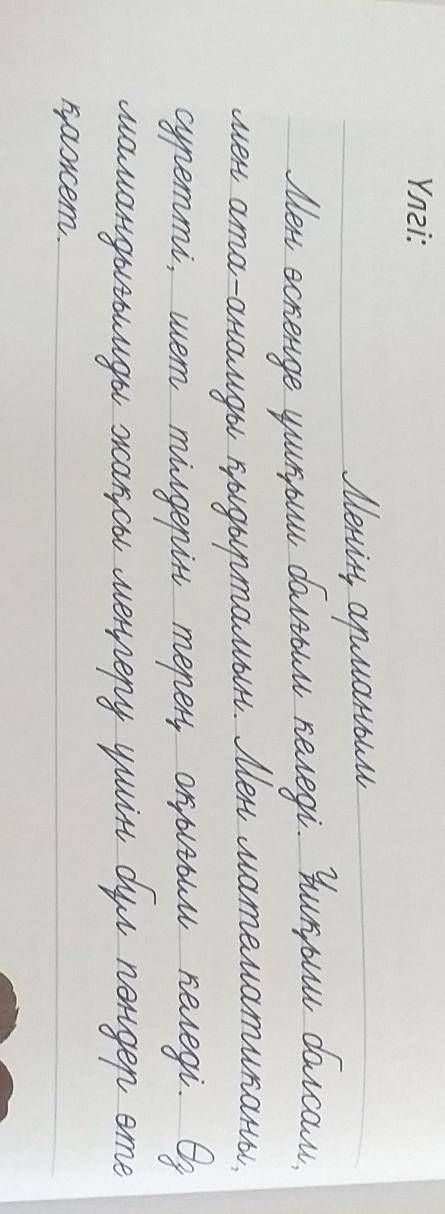 Үлгі:
Менің арманым
Мен өскенде ұшқыш болғым келеді. Ұшқыш болсам,
мен ата-анамды қыдыртамын. Мен математиканы,
суретті, шет тілдерін терең оқығым келеді. Өз
мамандығымды жақсы меңгеру үшін бұл пәндер өте
қажет.